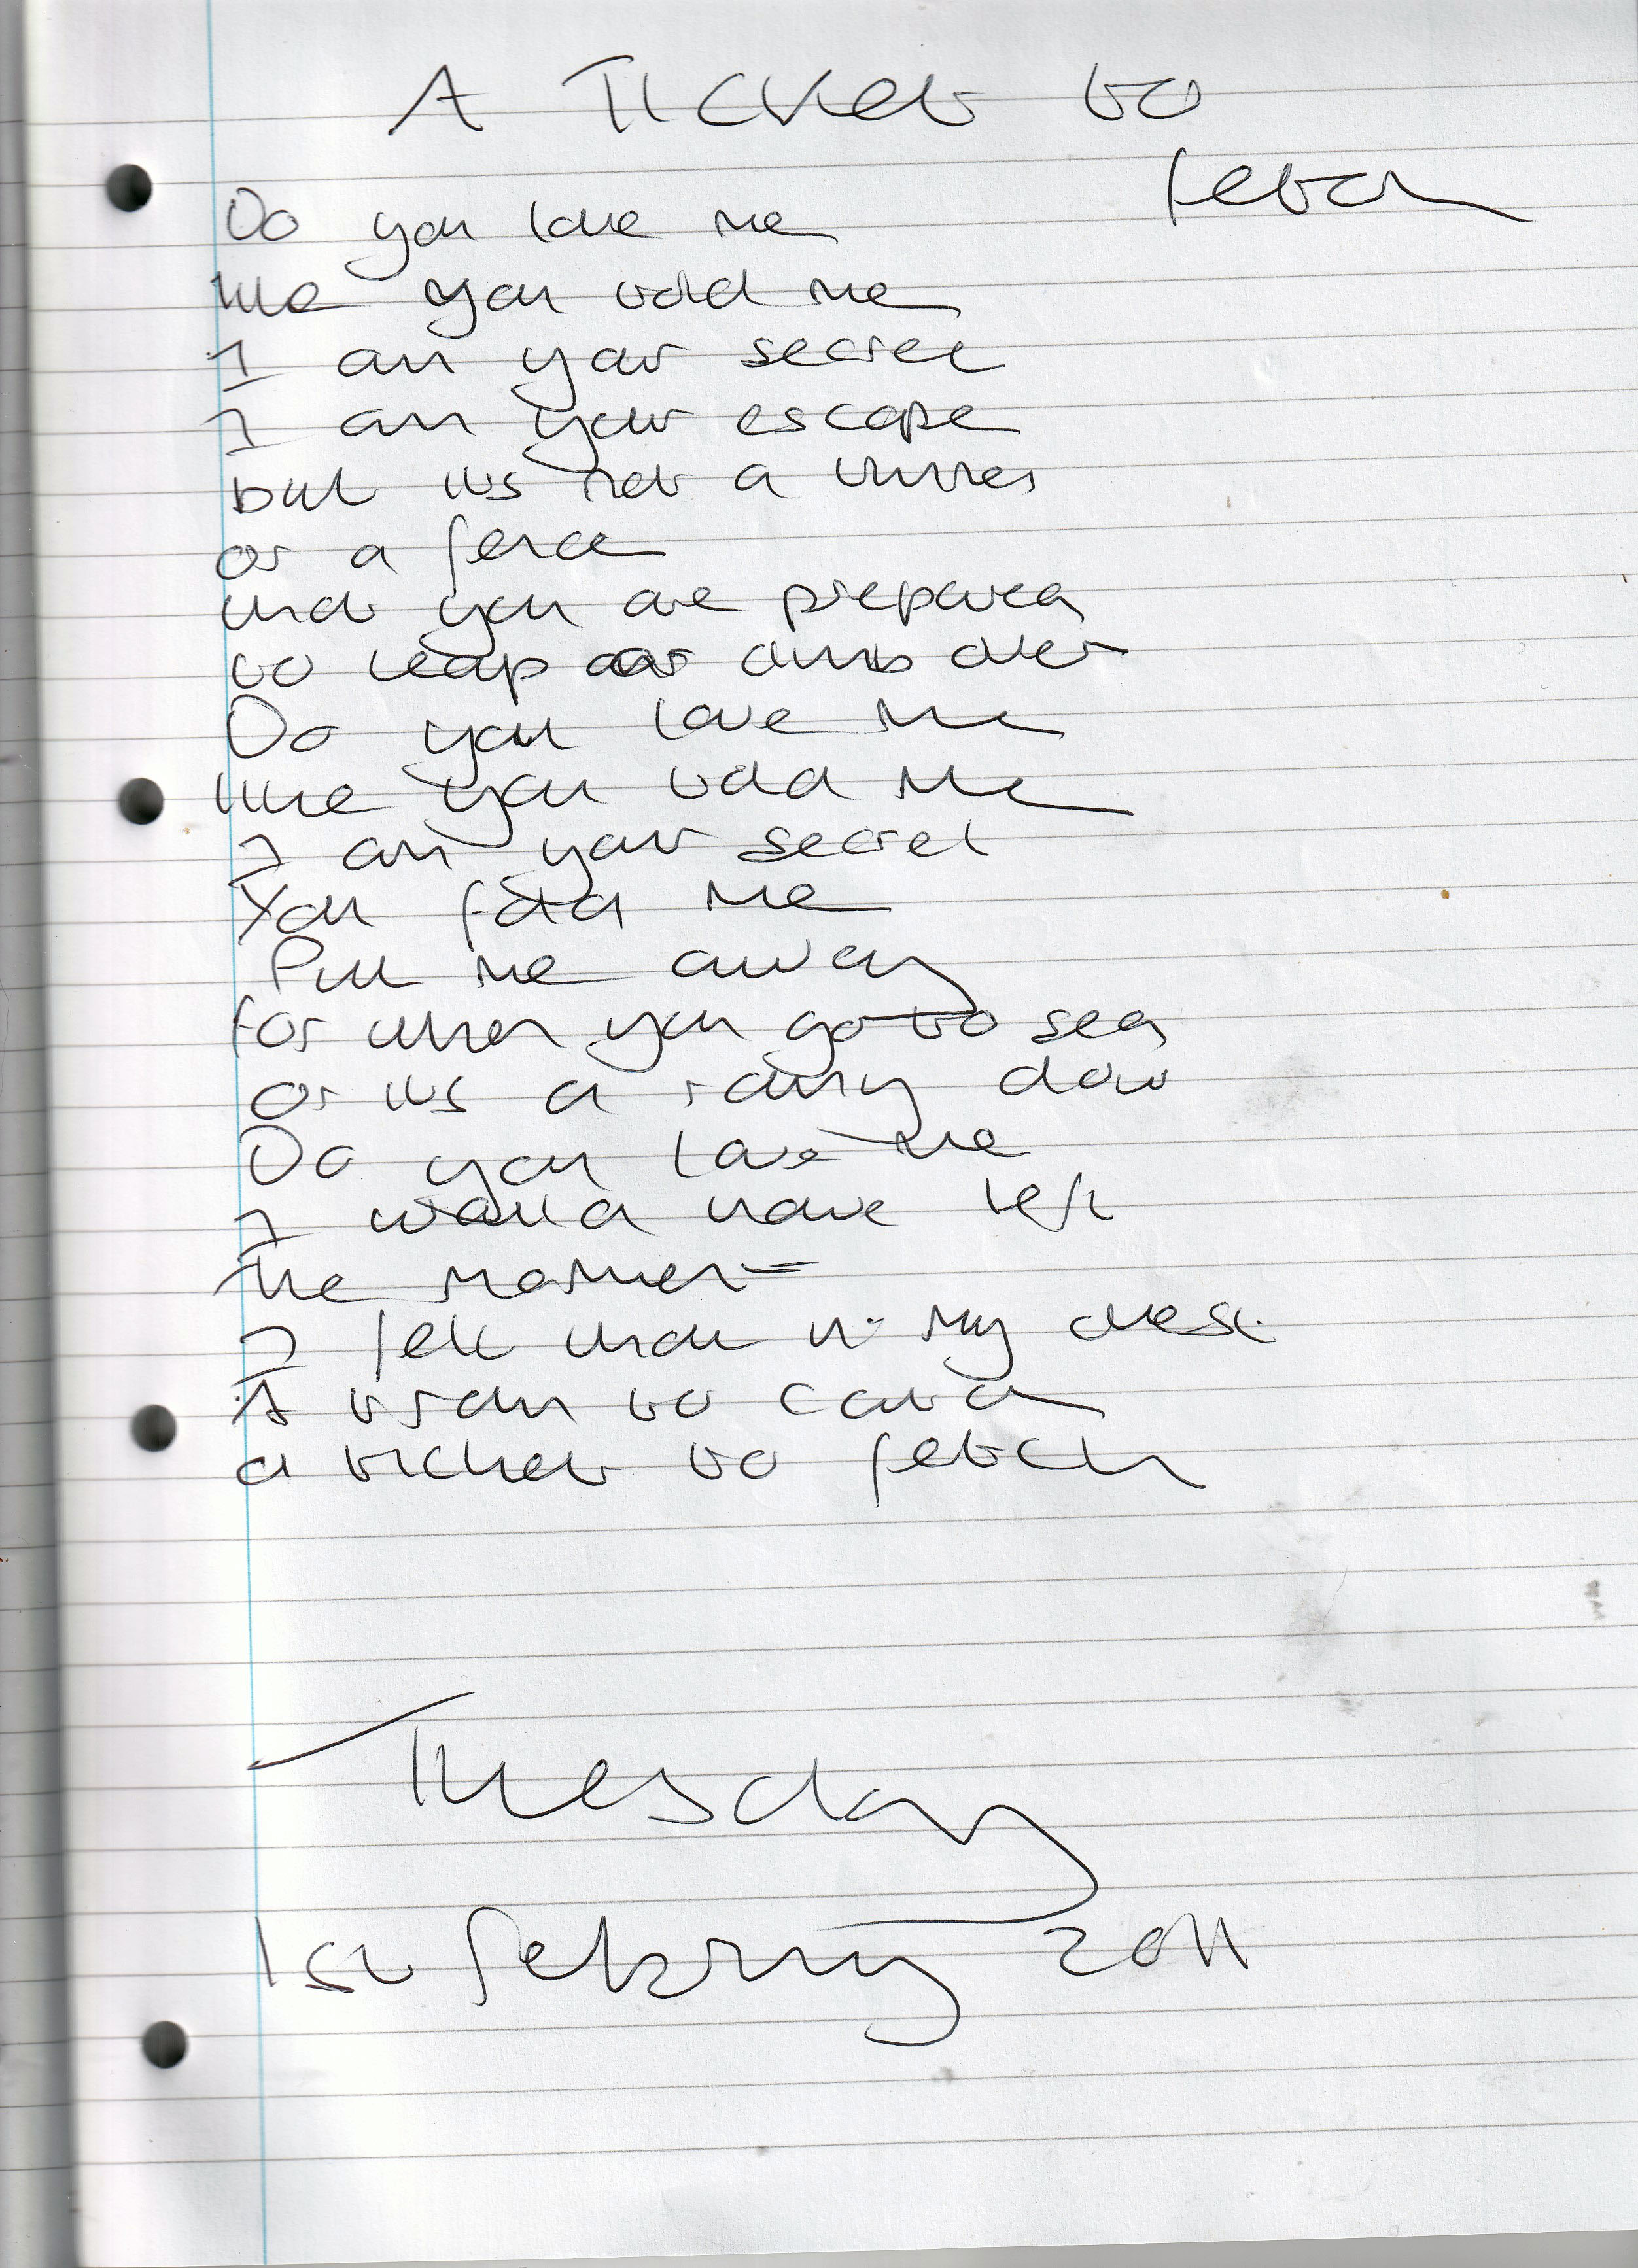 A Ticket to
fetch
Do you love me
like you told me
I am your secret
I am your escape
but its not a
or a fence
that you are prepared
to leap or climb over
Do you love me
like you told me
I am your secret
You fold me
Put me away
for when you go to sea
or its a rainy day
Do you love me
I would have left
the moment
I felt that in my chest
A train to catch
a ticket to fetch
Tuesday
1st February 2011